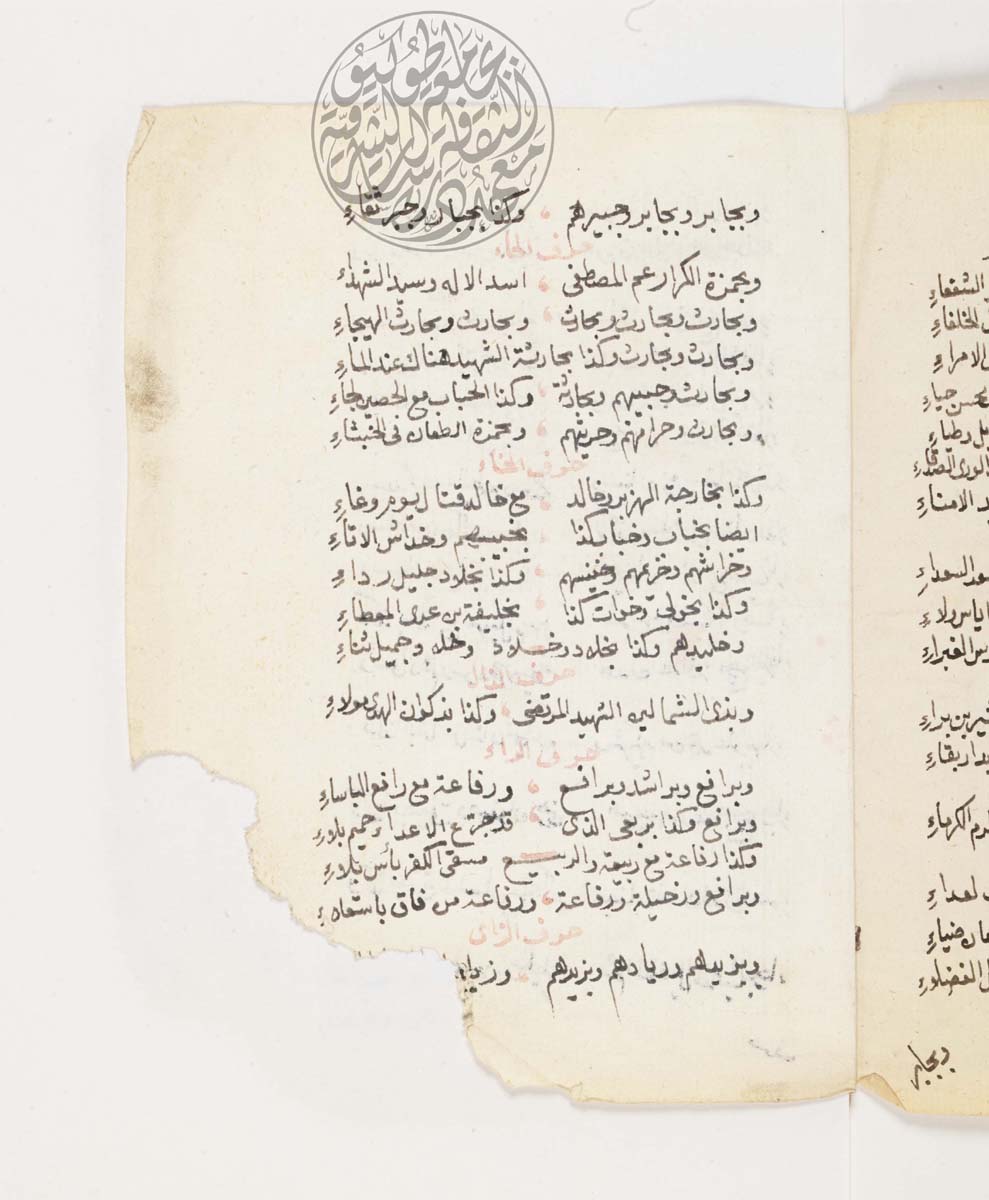 وبجابر وبجابر وجبيرهم وكذا بجبار وجبر ثقاء
حرف الحاء
وبحمزة الكرار عم المصطفى اسد الاله وسيد الشهداء
وبحارث وبحارث وبحارث وبحارث وبحارث الهيجاء
وبحارث وبحارث وكذا بحارثة الشهيد هناك عند الماء
وبحارث وحبيبهم وبحارثة وكذا الحباب مع الحصين
وبحارث وحرامهم وحريثهم وبحمزة الطعان في
حرف الخاء
وكذا بخارجة الهزبر وخالد مع خالد قتال يوم وغاء
ايضا بخباب وخباب كذا بخبيبهم وخداش الاتقاء
وخراشهم وخريمهم وخنيسهم وكذا بخلاد جليل رداء
وكذا بخولي وخوات كذا بخليفة بن عدي المعطاء
وخليدهم وكذا بخلاد وخلاد وخلاد وجميل ثناء
حرف الذال
وبذي الشمالين الشهيد المرتضى وكذا بذكوان الهدى بولاء
حرف الراء
وبرافع وبراشد وبرافع ورفاعة مع رافع الباساء
وبرافع وكذا بربعي الذي قد جرع الاعداء حميم بلاء
وكذا رفاعة مع ربيعة والربيع مسقى الكفر بأس بلاء
وبرافع ورخيلة ورفاعة ورفاعة من فاق باستعلاء
حرف الزاي
وبزيدهم وزيادهم وبزيدهم
الشفعاء
الخلفاء
الامراء
حياء
الامناء
السعداء
ولاء
الغبراء
بن براء
الكرماء
ضياء
الفضلاء
وبجابر